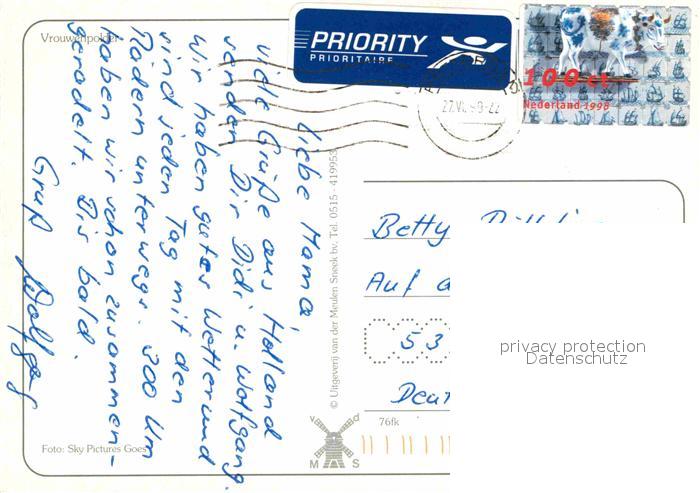 Vrouwenpolder
PRIORITY
PRIORITAIRE
100 ct
Nederland 1998
liebe Mama,
viele Grüße aus Holland
senden Dir Didi u. Wolfgang.
Wir haben gutes Wetter und
sind jeden Tag mit den
Rädern unterwegs. 300 km
haben wir schon zusammen-
geradelt. Bis bald.
Gruß Wolfgang
© Uitgeverij van der Meulen Sneek bv. Tel. 0515 - 419953
Betty
Auf
53
76fk
V D
M S
Foto: Sky Pictures Goes
privacy protection
Datenschutz